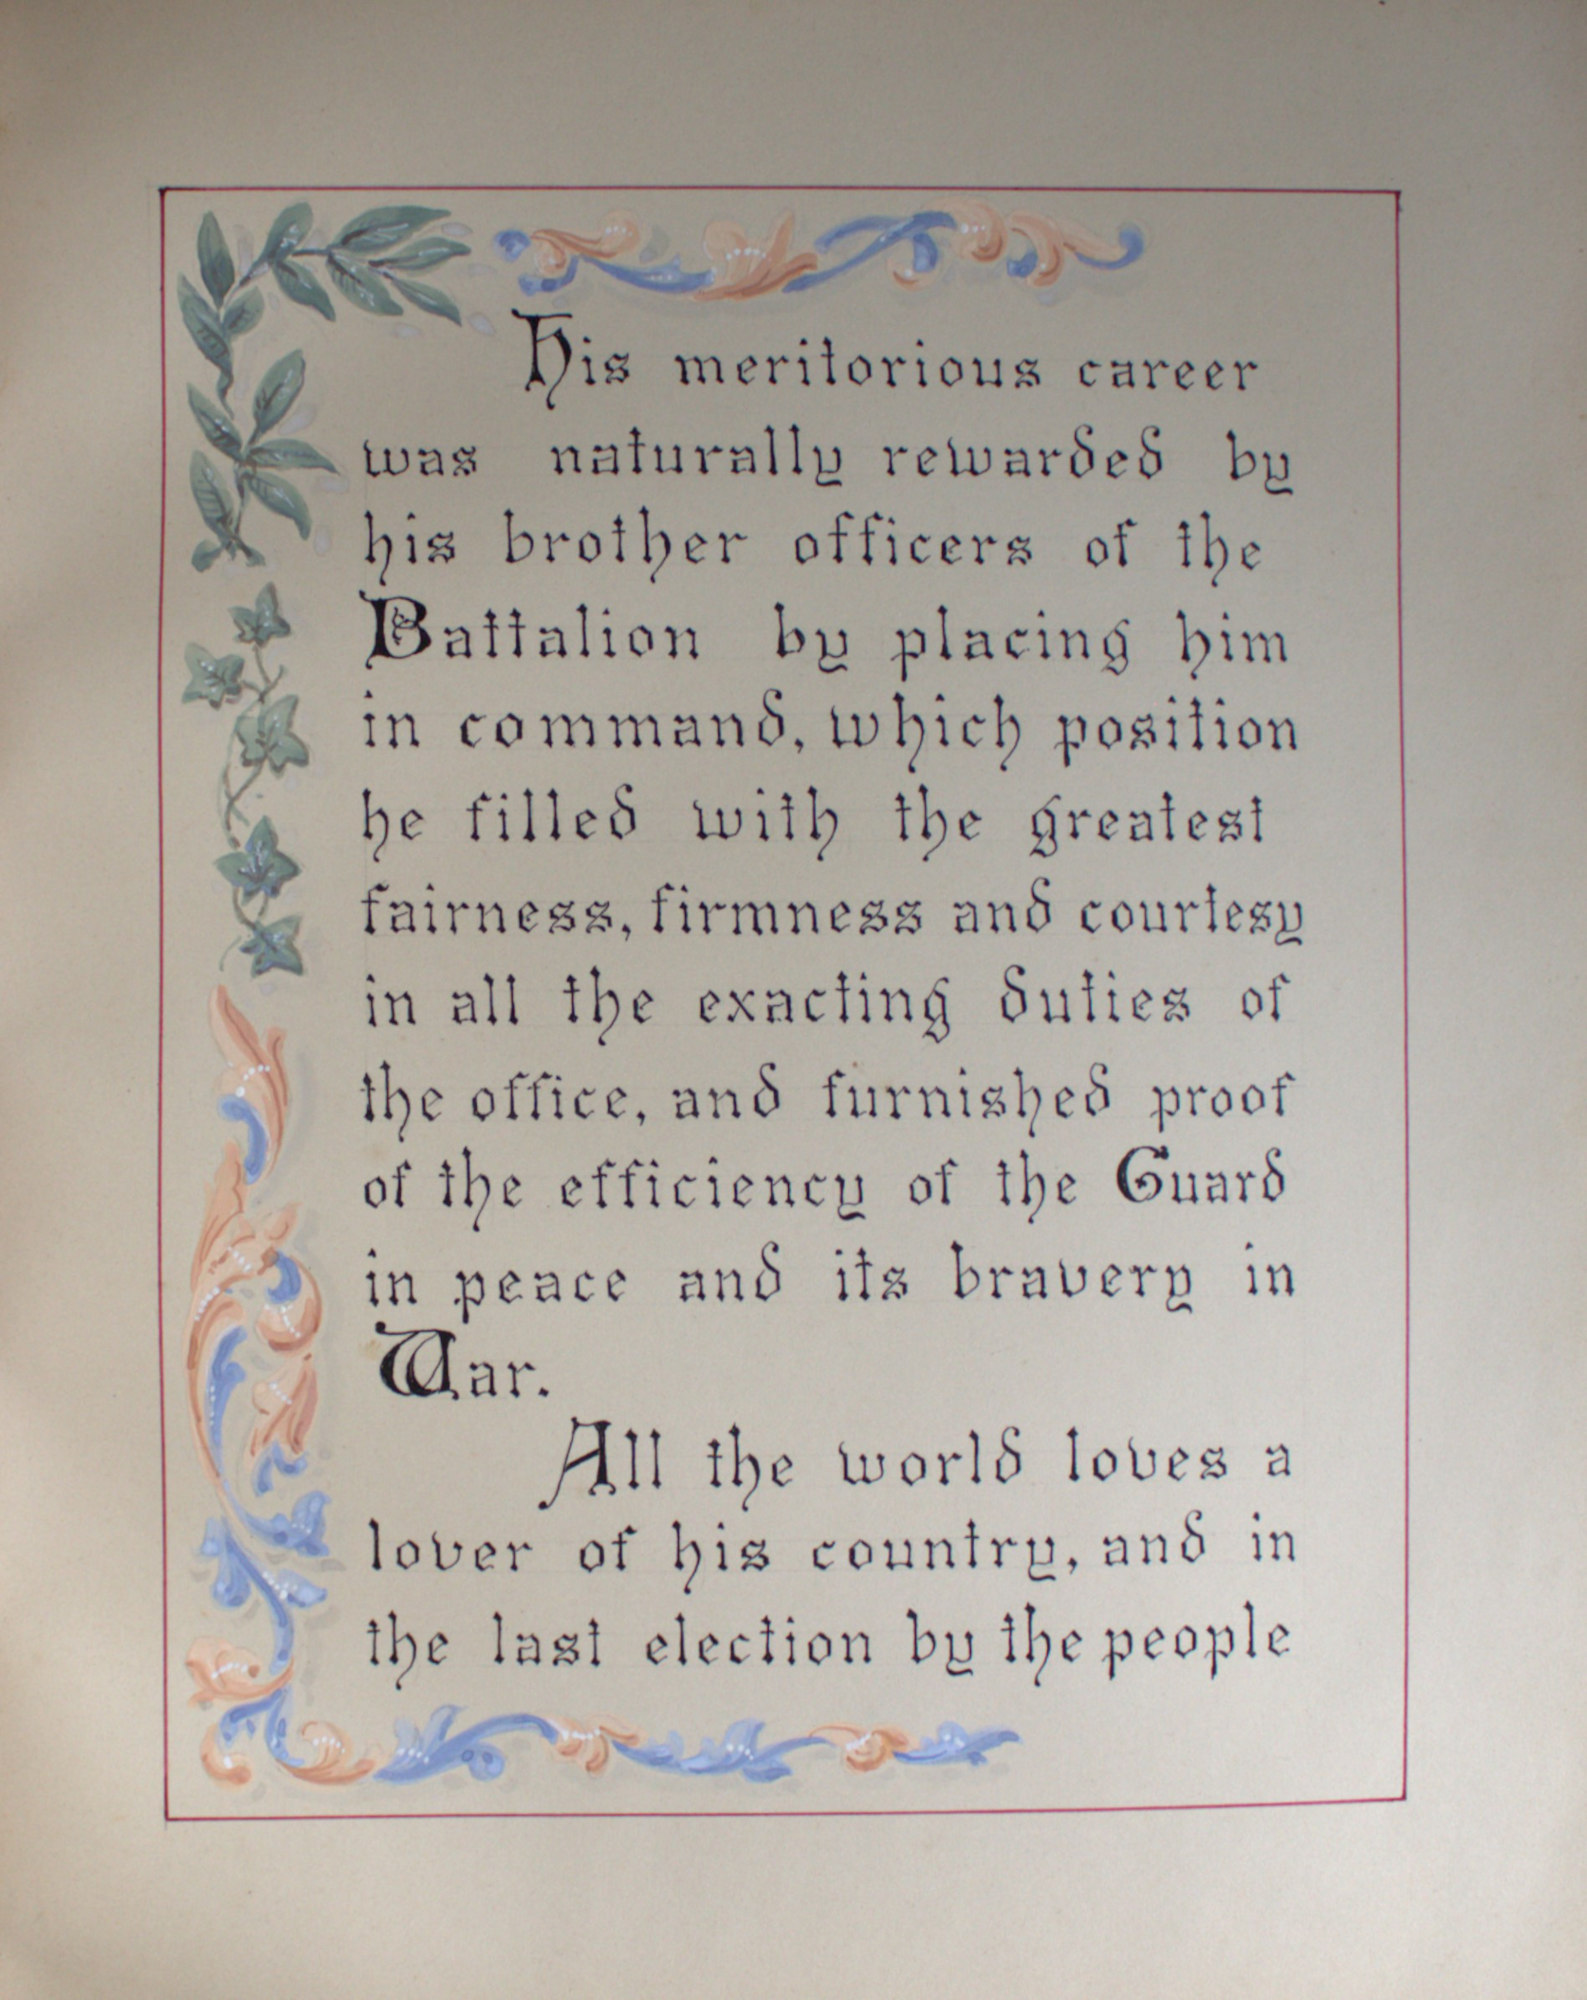 His meritorious career
was naturally rewarded by
his brother officers of the
Battalion by placing him
in command, which position
he filled with the greatest
fairness, firmness and courtesy
in all the exacting duties of
the office, and furnished proof
of the efficiency of the Guard
in peace and its bravery in
War.
All the world loves a
lover of his country, and in
the last election by the people